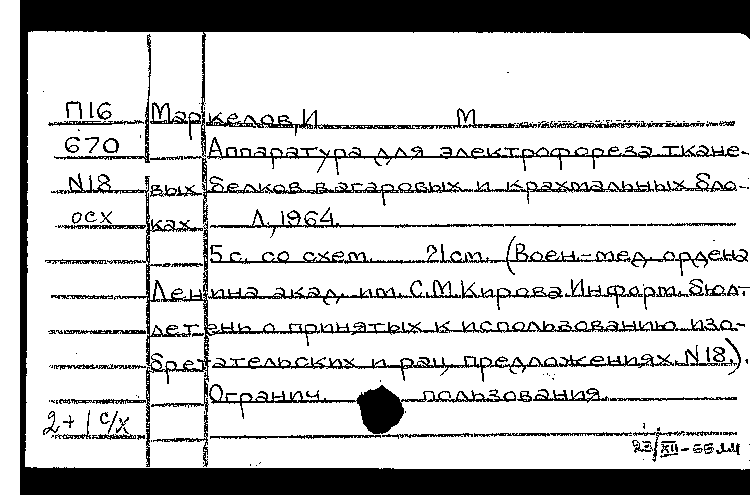 П16 Маркелов, И М
670 Аппаратура для электрофореза ткане-
N18 вых белков в агаровых и крахмальных бло-
осх ках Л., 1964.
5 с. со схем. 21 см. (Воен.-мед. ордена
Ленина акад. им. С.М.Кирова. Информ. бюл-
летень о принятых к использованию изо-
бретательских и рац. предложениях N18.).
Огранич. пользования.
2+1 с/х
23/XII-66